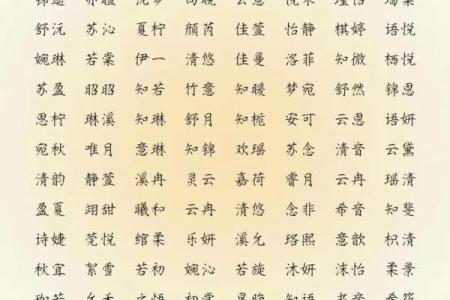 舒沅 苏沁 夏柠 颜芮 佳萱 怡静 棋婷 语悦
婉琳 若棠 伊一 清悠 佳曼 洛菲 知微 栖悦
苏盈 昭昭 知若 竹意 知暖 梦宛 舒然 锦思
思柠 琳溪 知琳 舒月 知栀 安可 云思 语妍
宛秋 唯月 意琳 知锦 欢瑶 苏念 清音 云黛
清韵 静萱 溪冉 灵云 嘉荷 蓉月 云冉 瑶清
盈夏 翊甜 曦和 云冉 清悠 念非 希音 知斐
诗婕 莞悦 绾柔 乐妍 溪允 珞熙 意歆 枳清
秋宜 絮雪 若初 婉沁 若旋 沐妍 沫怡 柔景